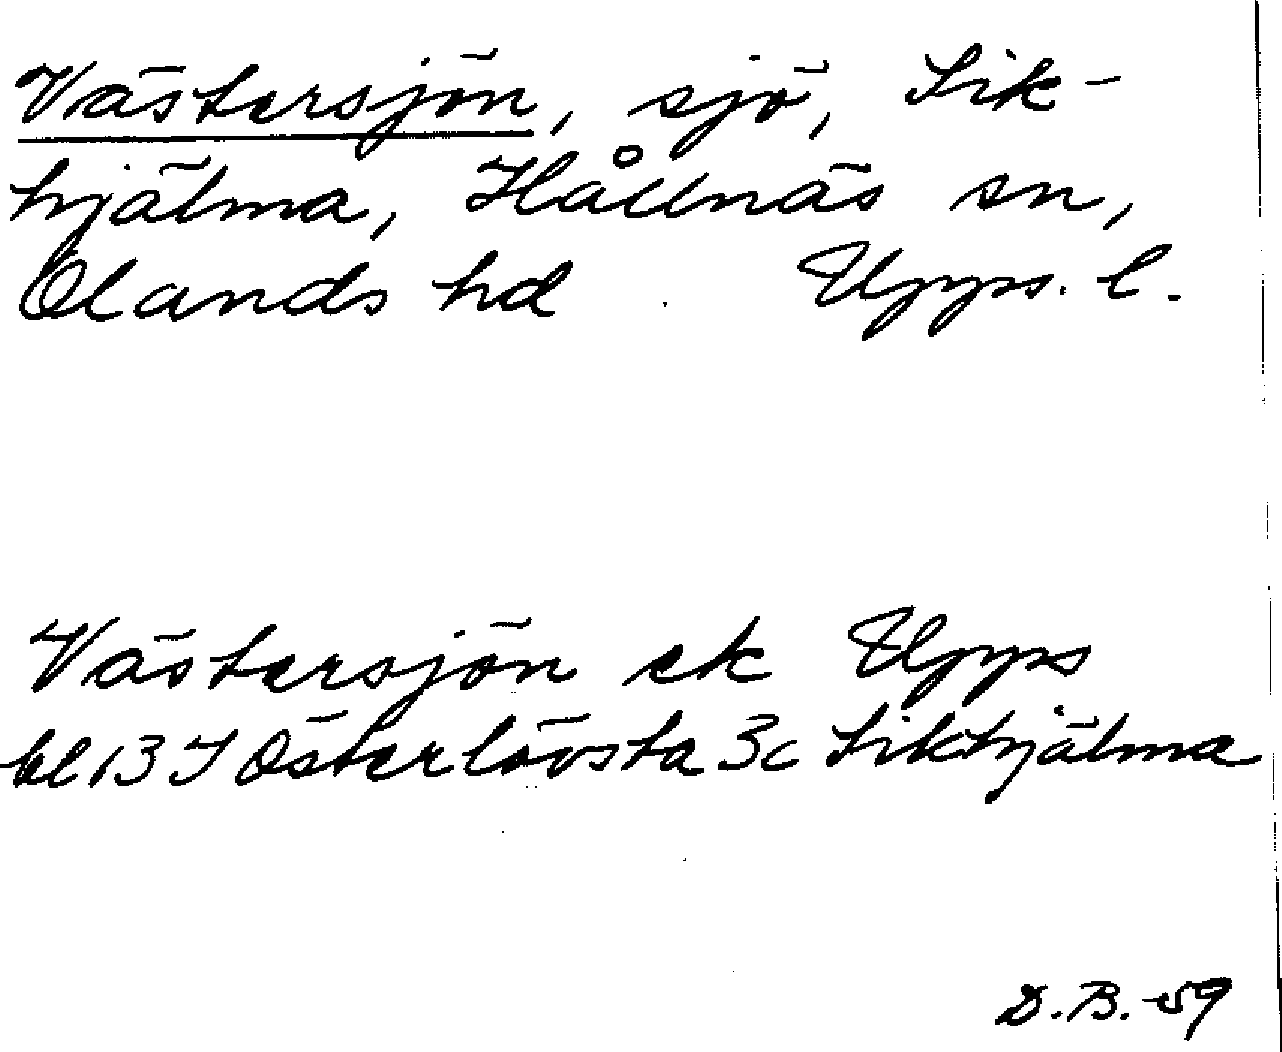 Västersjön, sjö, Sik-
hjälma, Hållnäs sn,
Olands hd Upps. l.
Västersjön ek Upps
bl 13 I Österlövsta 3c Sikhjälma
D.B. -59